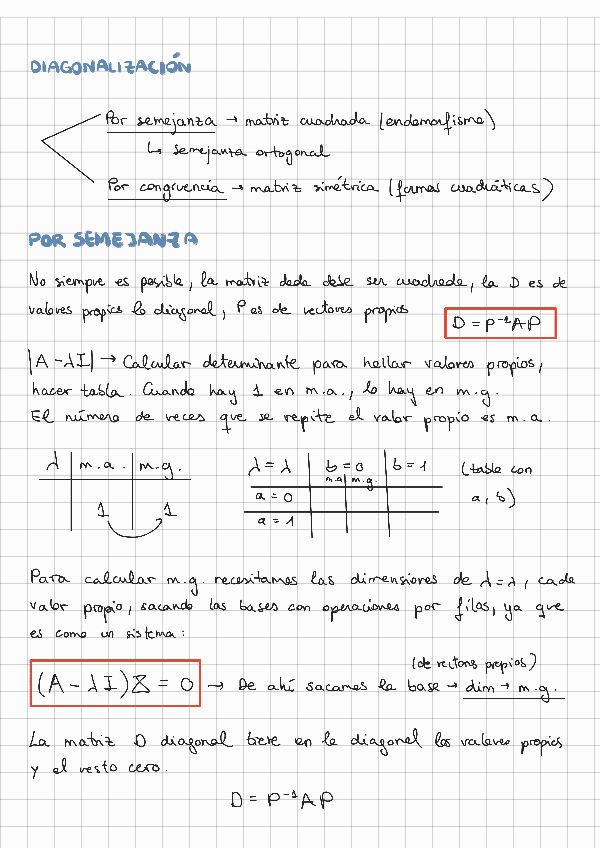 DIAGONALIZACIÓN
Por semejanza → matriz cuadrada (endomorfismo)
↳ semejanza ortogonal
Por congruencia → matriz simétrica (formas cuadráticas)
POR SEMEJANZA
No siempre es posible, la matriz dada debe ser cuadrada, la D es de
valores propios la diagonal, P es de vectores propios
D = P⁻¹AP
|A - λI| → Calcular determinante para hallar valores propios,
hacer tabla. Cuando hay 1 en m.a., lo hay en m.g.
El número de veces que se repite el valor propio es m.a.
λ m.a. m.g.
1 1
λ = λ b = 0 b = 1 (tabla con
m.a m.g.
a = 0 a, b)
a = 1
Para calcular m.g. necesitamos las dimensiones de λ = λ, cada
valor propio, sacando las bases con operaciones por filas, ya que
es como un sistema:
(de vectores propios)
(A - λI)X = 0 → De ahí sacamos la base → dim → m.g.
La matriz D diagonal tiene en la diagonal los valores propios
y el resto cero.
D = P⁻¹AP